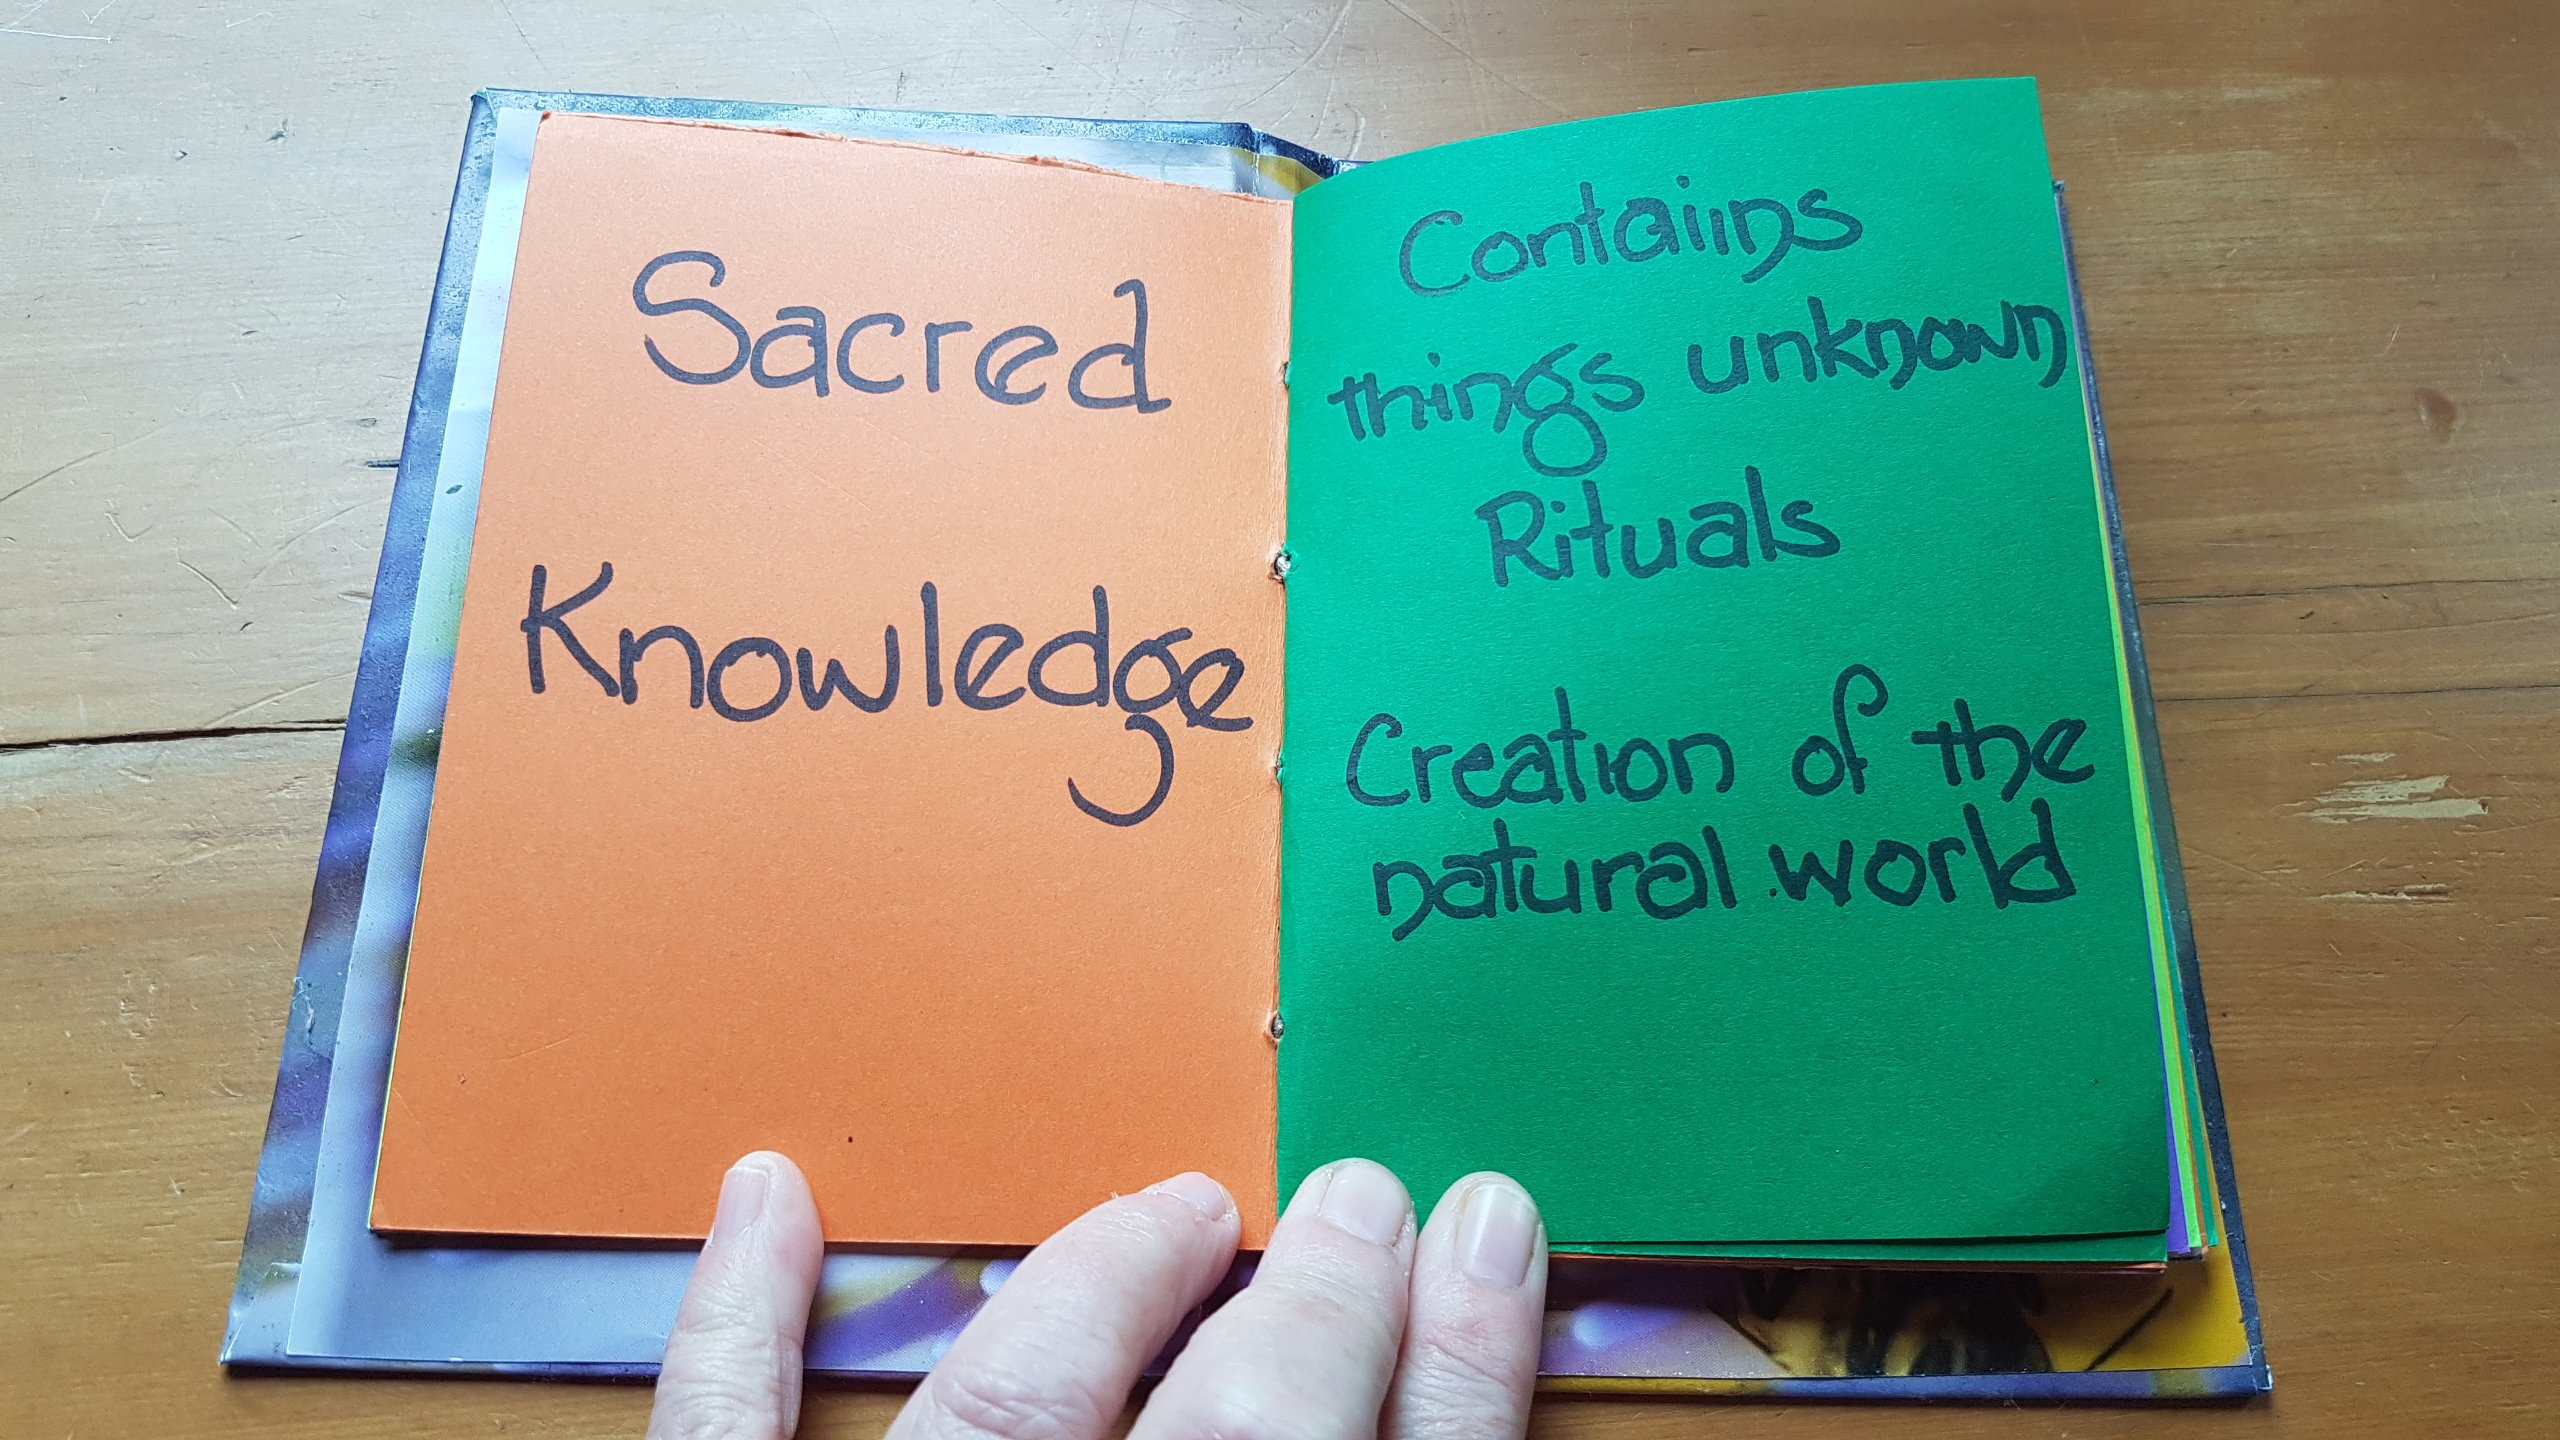 Sacred
Knowledge
Contaiins
things unknown
Rituals
Creation of the
natural world